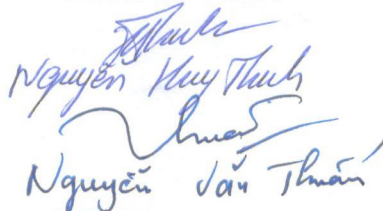 Nguyễn Huy Thinh
Nguyễn Văn Thuấn